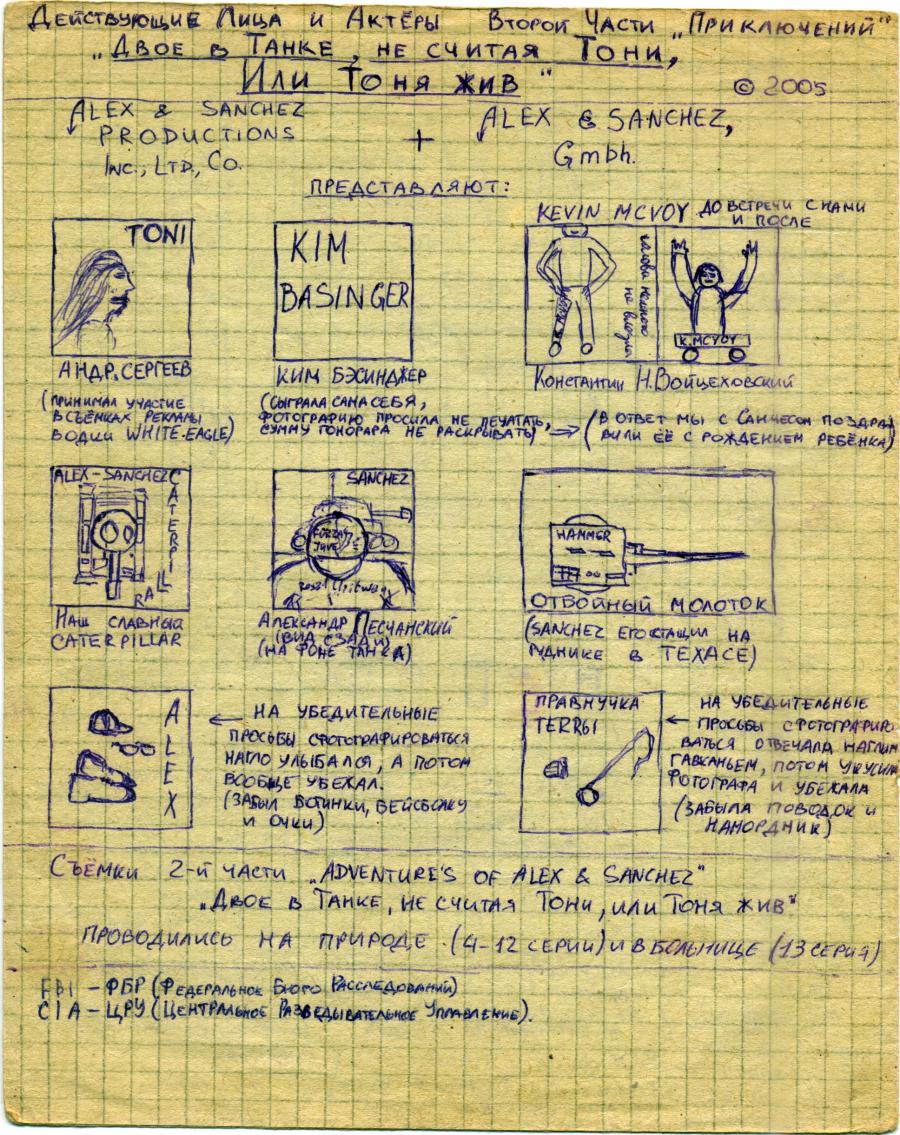 Действующие Лица и Актёры Второй Части „Приключений"
„Двое в Танке, не считая Тони,
Или Тоня жив"
© 2005
ALEX & SANCHEZ
PRODUCTIONS
INC., LTD, CO.
+
ALEX & SANCHEZ,
Gmbh.
ПРЕДСТАВЛЯЮТ:
TONI
АНДР. СЕРГЕЕВ
(ПРИНИМАЛ УЧАСТИЕ
В СЪЁМКАХ РЕКЛАМЫ
ВОДКИ WHITE-EAGLE)
KIM
BASINGER
КИМ БЭСИНДЖЕР
(СЫГРАЛА САМА СЕБЯ,
ФОТОГРАФИЮ ПРОСИЛА НЕ ПЕЧАТАТЬ,
СУММУ ГОНОРАРА НЕ РАСКРЫВАТЬ)
(В ОТВЕТ МЫ С САНЧЕСОМ ПОЗДРА
ВИЛИ ЕЁ С РОЖДЕНИЕМ РЕБЁНКА)
KEVIN MCVOY ДО ВСТРЕЧИ С НАМИ
И ПОСЛЕ
голова немного
не влезла
K.MCVOY
Константин Н.Войцеховский
ALEX-SANCHEZ
CATERPILLAR
Наш славный
CATERPILLAR
SANCHEZ
FORZA
JUVE
Александр Песчанский
(ВИД СЗАДИ)
(НА ФОНЕ ТАНКА)
HAMMER
ОТБОЙНЫЙ МОЛОТОК
(SANCHEZ ЕГО СТАЩИЛ НА
РУДНИКЕ В ТЕХАСЕ)
ALEX
НА УБЕДИТЕЛЬНЫЕ
ПРОСЬБЫ СФОТОГРАФИРОВАТЬСЯ
НАГЛО УЛЫБАЛСЯ, А ПОТОМ
ВООБЩЕ УБЕЖАЛ.
(ЗАБЫЛ БОТИНКИ, БЕЙСБОЛКУ
И ОЧКИ)
ПРАВНУЧКА
TERRЫ
НА УБЕДИТЕЛЬНЫЕ
ПРОСЬБЫ СФОТОГРАФИРО
ВАТЬСЯ ОТВЕЧАЛА НАГЛЫМ
ГАВКАНЬЕМ, ПОТОМ УКУСИЛА
ФОТОГРАФА И УБЕЖАЛА
(ЗАБЫЛА ПОВОДОК И
НАМОРДНИК)
Съёмки 2-й части „ADVENTURE'S OF ALEX & SANCHEZ"
„Двое в Танке, не считая Тони, или Тоня жив"
ПРОВОДИЛИСЬ НА ПРИРОДЕ (4-12 СЕРИИ) И В БОЛЬНИЦЕ (13 СЕРИЯ)
FBI – ФБР (Федеральное Бюро Расследований)
CIA – ЦРУ (Центральное Разведывательное Управление).